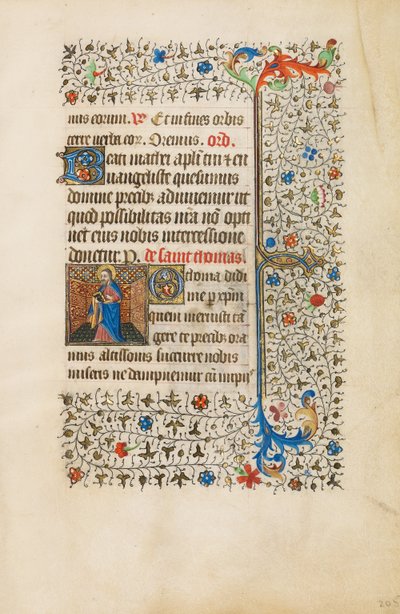 nus eorum. V Et in fines orbis
terre verba eor. Oremus. ord.
Beati mathei apl'i tui et eu
uangeliste quesumus
domine precibus adiuuemur ut
quod possibilitas n̄ra nō opti
net eius nobis intercessione
donetur. P. de saint thomas.
O thoma didi
me p xpm
quem meruisti tā
gere te precibus ora
mus altissonis succurre nobis
miseris ne dampnemur cū impiis
205